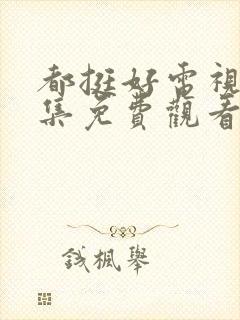 都挺好電視
集免費觀看
錢楓舉